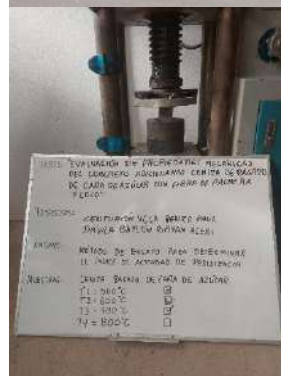 TESIS: "EVALUACIÓN DE PROPIEDADES MECÁNICAS
DEL CONCRETO ADICIONANDO CENIZA DE BAGAZO
DE CAÑA DE AZÚCAR CON FIBRA DE PALMERA
Y COCO"
TESISTAS:
BENITO PAUL
ENSAYO: MÉTODO DE ENSAYO PARA DETERMINAR
EL ÍNDICE DE ACTIVIDAD DE RESISTENCIA
MUESTRAS: CENIZA BAGAZO DE CAÑA DE AZÚCAR
T1 = 500°C
T2 = 600°C
T3 = 700°C
T4 = 800°C